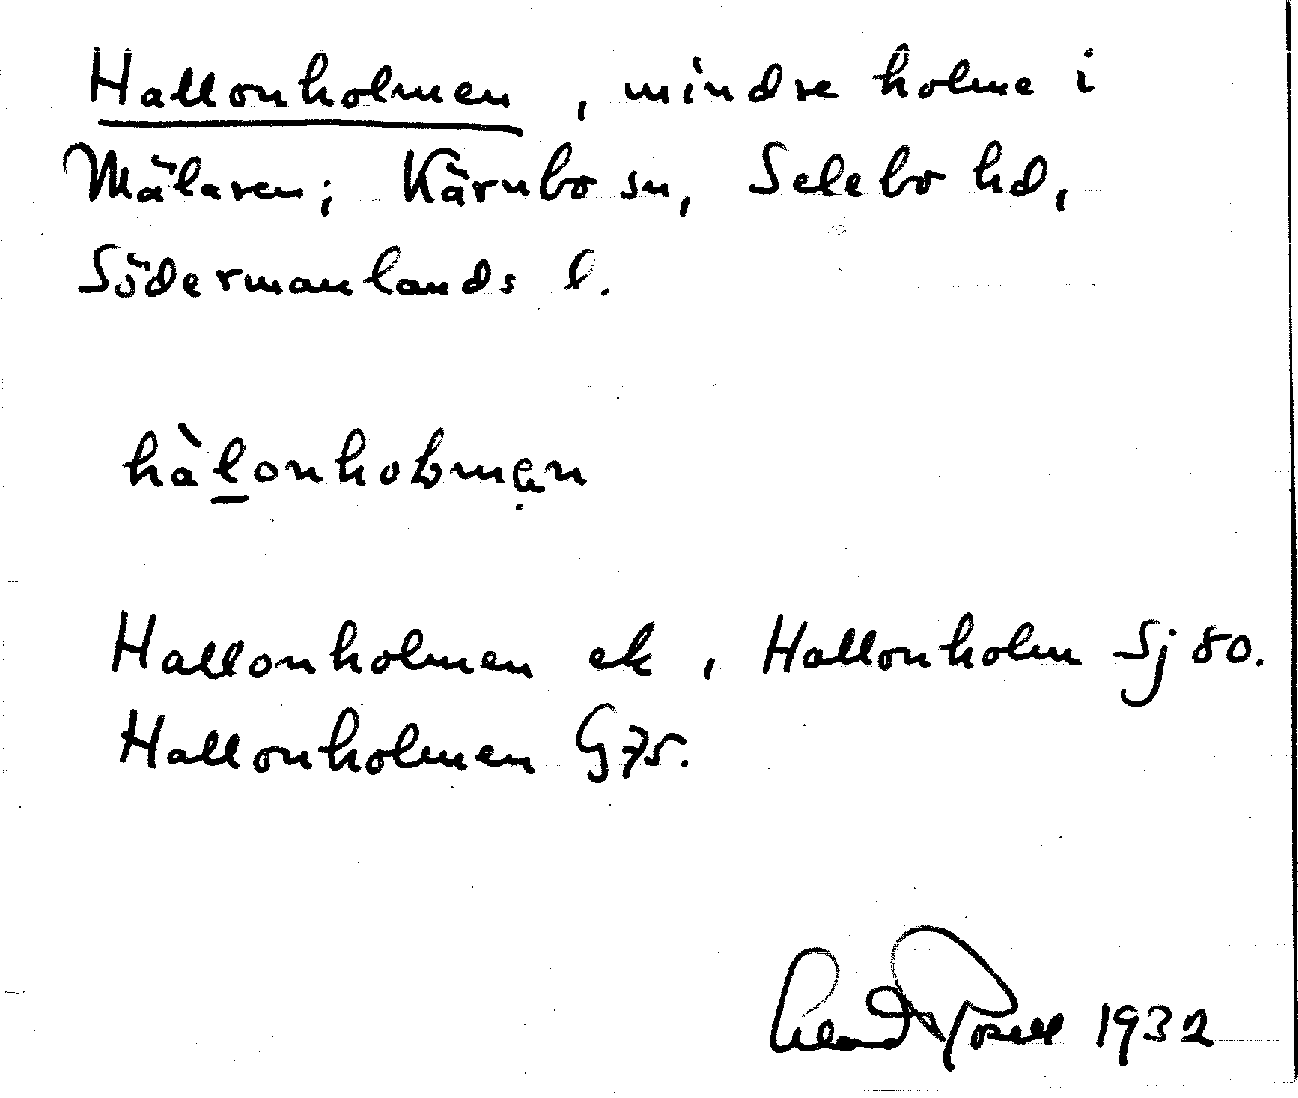 Hallonholmen, mindre holme i
Mälaren; Kärnbo sn, Selebo hd,
Södermanlands l.
Hallonholmen ek, Hallonholm Sj 80.
Hallonholmen G 75.
1932